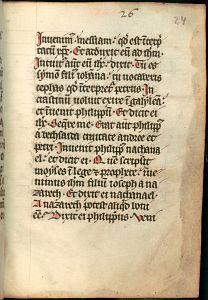 26
24
Invenim messiam qd est interp
tatū xpc Et adduxit eū ad ihm
Intuit aut eū ihc dixit Tu es
symō filiꝰ iohāna tu vocaberis
cephas qd interptet petrus In
crastinū voluit exire ī galyleā
et invenit philippū Et dicit ei
ihc Seqre me Erat aut philippꝰ
a bethsaida civitate andree et
petri Invenit philippꝰ nathana
el et dicit ei Quē scripsit
moyses ī lege et prophete īve
nimus ihm filiū ioseph a na
zareth Et dixit ei nathanael
A nazareth potest aliqd boni
eē Dixit ei philippus Veni